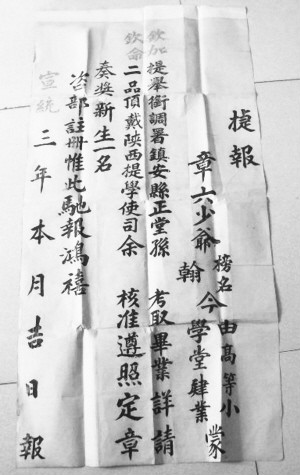 捷報
章六少爺 榜名翰 今由高等小學堂肄業蒙
欽加提舉銜調署鎮安縣正堂孫 考取畢業詳請
欽命二品頂戴陝西提學使司余 核准遵照定章
奏獎新生一名
咨部註冊惟此馳報鴻禧
宣統三年本月吉日報